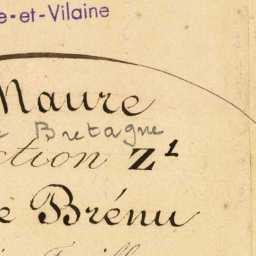 e-et-Vilaine
Maure
Bretagne
ction Z¹
e Brénu